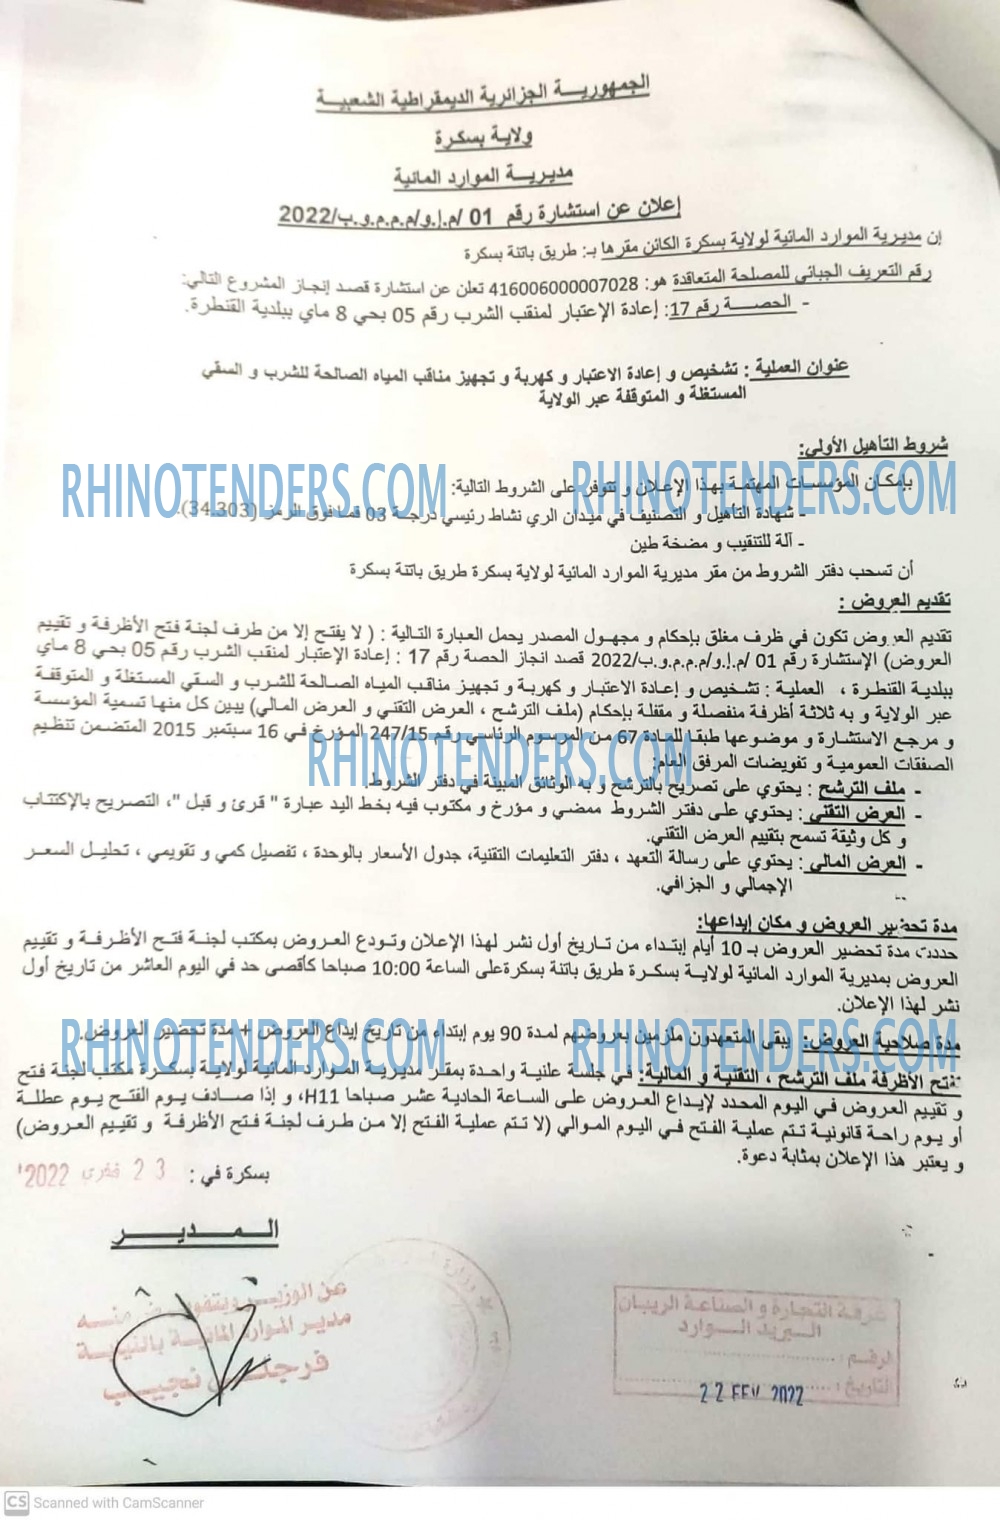 الجمهوريـــة الجزائرية الديمقراطية الشعبيـة
ولايـة بسكـرة
مديريـــة الموارد المائية
إعلان عن استشارة رقم 01 /م.إ.و/م.م.م.و.ب/2022
إن مديرية الموارد المائية لولاية بسكرة الكائن مقرها بـ: طريق باتنة بسكرة
رقم التعريف الجبائي للمصلحة المتعاقدة هو: 416006000007028 تعلن عن استشارة قصد إنجاز المشروع التالي:
- الحصـــة رقم 17: إعادة الإعتبار لمنقب الشرب رقم 05 بحي 8 ماي ببلدية القنطرة.
عنوان العملية : تشخيص و إعادة الاعتبار و كهربة و تجهيز مناقب المياه الصالحة للشرب و السقي
المستغلة و المتوقفة عبر الولاية
شروط التأهيل الأولي:
RHINOTENDERS.COM RHINOTENDERS.COM
بإمكان المؤسسات المهتمة بهذا الإعلان و تتوفر على الشروط التالية:
- شهادة التأهيل و التصنيف في ميدان الري نشاط رئيسي درجة 03 فما فوق الرمز (34.303).
- آلة للتنقيب و مضخة طين
أن تسحب دفتر الشروط من مقر مديرية الموارد المائية لولاية بسكرة طريق باتنة بسكرة
تقديم العروض :
تقديم العروض تكون في ظرف مغلق بإحكام و مجهول المصدر يحمل العبارة التالية : ( لا يفتح إلا من طرف لجنة فتح الأظرفة و تقييم
العروض) الإستشارة رقم 01 /م.إ.و/م.م.م.و.ب/2022 قصد انجاز الحصة رقم 17 : إعادة الإعتبار لمنقب الشرب رقم 05 بحي 8 ماي
ببلدية القنطرة ، العملية : تشخيص و إعادة الاعتبار و كهربة و تجهيز مناقب المياه الصالحة للشرب و السقي المستغلة و المتوقفة
عبر الولاية و به ثلاثة أظرفة منفصلة و مقفلة بإحكام (ملف الترشح ، العرض التقني و العرض المالي) يبين كل منها تسمية المؤسسة
و مرجع الاستشارة و موضوعها طبقا للمادة 67 من المرسوم الرئاسي رقم 247/15 المؤرخ في 16 سبتمبر 2015 المتضمن تنظيم
الصفقات العمومية و تفويضات المرفق العام:
RHINOTENDERS.COM
- ملف الترشح : يحتوي على تصريح بالترشح و به الوثائق المبينة في دفتر الشروط.
- العرض التقني : يحتوي على دفتر الشروط ممضي و مؤرخ و مكتوب فيه بخط اليد عبارة " قرئ و قبل "، التصريح بالإكتتاب
و كل وثيقة تسمح بتقييم العرض التقني.
- العرض المالي : يحتوي على رسالة التعهد ، دفتر التعليمات التقنية، جدول الأسعار بالوحدة ، تفصيل كمي و تقويمي ، تحليل السعر
الإجمالي و الجزافي.
مدة تحضير العروض و مكان إيداعها:
حددت مدة تحضير العروض بـ 10 أيام إبتداء من تاريخ أول نشر لهذا الإعلان وتودع العروض بمكتب لجنة فتح الأظرفة و تقييم
العروض بمديرية الموارد المائية لولاية بسكرة طريق باتنة بسكرة على الساعة 10:00 صباحا كأقصى حد في اليوم العاشر من تاريخ أول
نشر لهذا الإعلان.
مدة صلاحية العروض: يبقى المتعهدون ملزمين بعروضهم لمدة 90 يوم إبتداء من تاريخ إيداع العروض + مدة تحضير العروض.
RHINOTENDERS.COM RHINOTENDERS.COM
فتح الأظرفة ملف الترشح ، التقنية و المالية: في جلسة علنية واحدة بمقر مديرية الموارد المائية لولاية بسكرة مكتب لجنة فتح
و تقييم العروض في اليوم المحدد لإيداع العروض على الساعة الحادية عشر صباحا H11، و إذا صادف يوم الفتح يوم عطلة
أو يوم راحة قانونية تتم عملية الفتح في اليوم الموالي (لا تتم عملية الفتح إلا من طرف لجنة فتح الأظرفة و تقييم العروض)
و يعتبر هذا الإعلان بمثابة دعوة.
بسكرة في : 23 فيفري 2022
المـديـــر
عن الوزير وبتفويض منه
مدير الموارد المائية بالنيابة
نجيب
غرفة التجارة و الصناعة الزيبان
البريد الوارد
الرقم :
التاريخ : 22 FEV 2022
CS Scanned with CamScanner